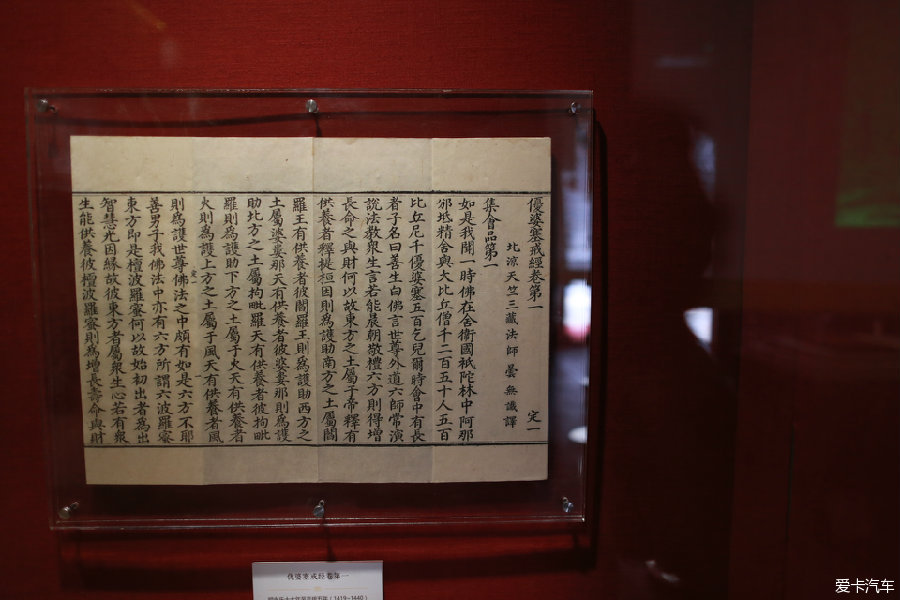 優婆塞戒經卷第一
定一
北涼天竺三藏法師曇無讖譯
集會品第一
如是我聞一時佛在舍衛國祇陀林中阿那
邠坻精舍與大比丘僧千二百五十人五百
比丘尼千優婆塞五百乞兒爾時會中有長
者子名曰善生白佛言世尊外道六師常演
說法教眾生言若能晨朝敬禮六方則得增
長命之與財何以故東方之土屬于帝釋有
供養者釋提桓因則為護助南方之土屬閻
羅王有供養者彼閻羅王則為護助西方之
土屬婆婁那天有供養者彼婆婁那則為護
助北方之土屬拘毗羅天有供養者彼拘毗
羅則為護助下方之土屬于火天有供養者
火則為護上方之土屬于風天有供養者風
則為護世尊佛法之中頗有如是六方不耶
善男子我佛法中亦有六方所謂六波羅蜜
東方即是檀波羅蜜何以故始初出者為出
智慧光因緣故彼東方者屬眾生心若有眾
生能供養彼檀波羅蜜則為增長壽命與財
優婆塞戒經卷第一
(1419-1440)
爱卡汽车